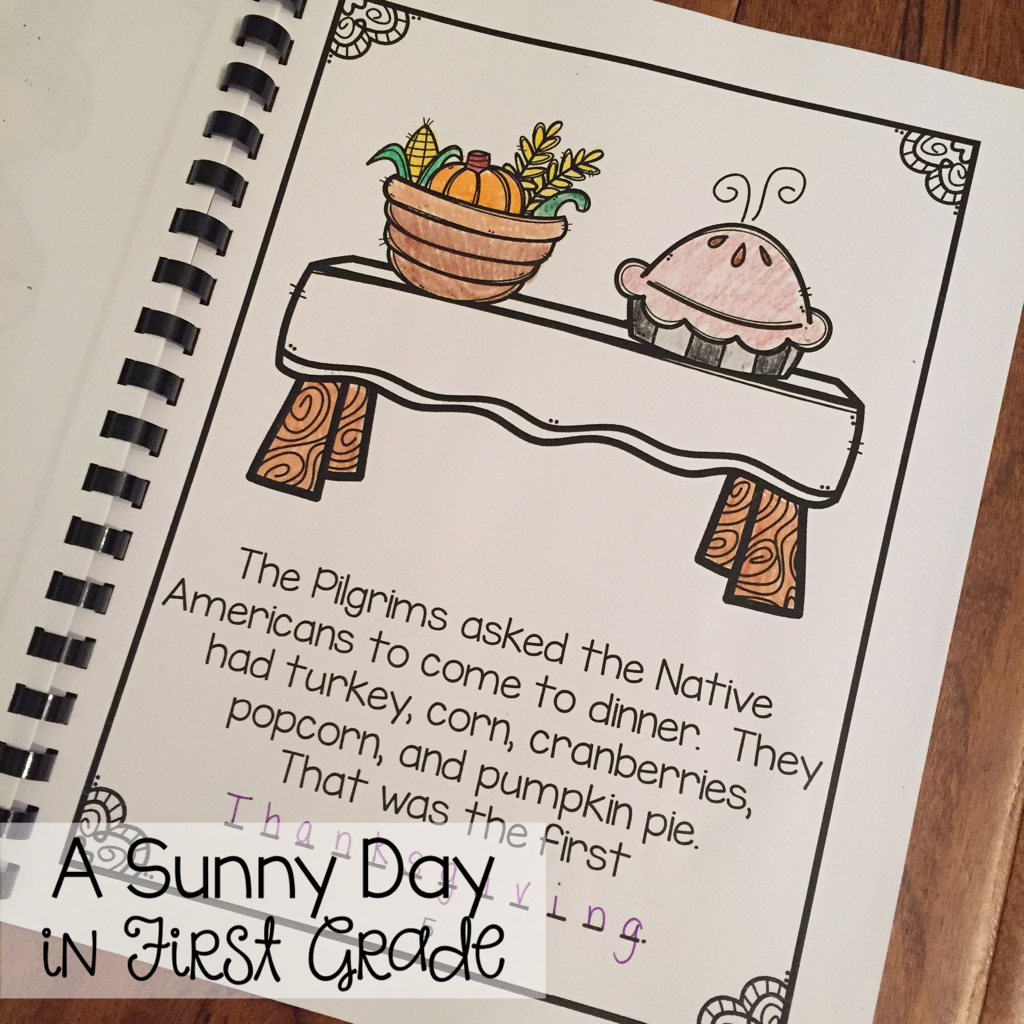 The Pilgrims asked the Native
Americans to come to dinner. They
had turkey, corn, cranberries,
popcorn, and pumpkin pie.
That was the first
Thanksgiving.
5
A Sunny Day
in First Grade